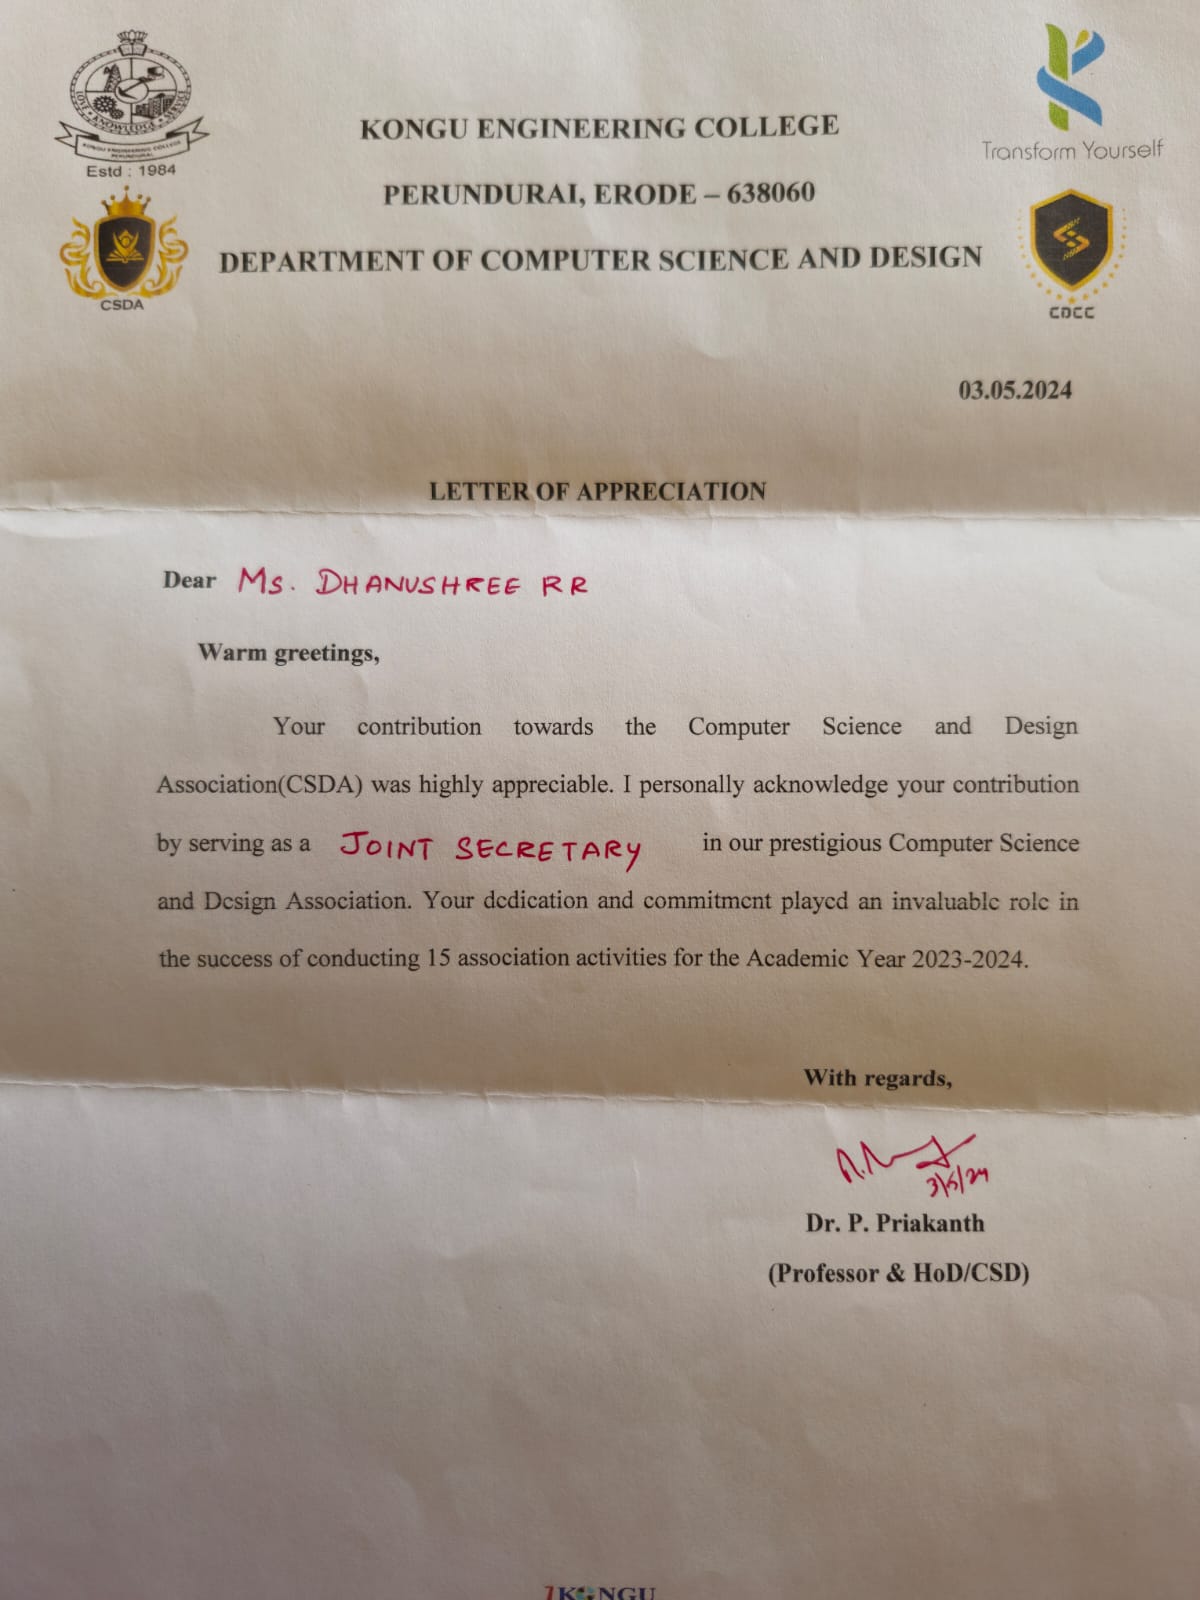 KONGU ENGINEERING COLLEGE
PERUNDURAI, ERODE – 638060
DEPARTMENT OF COMPUTER SCIENCE AND DESIGN
LOVE • KNOWLEDGE • SERVICE
KONGU ENGINEERING COLLEGE
PERUNDURAI
Estd : 1984
CSDA
Transform Yourself
CDCC
03.05.2024
LETTER OF APPRECIATION
Dear Ms. DHANUSHREE RR
Warm greetings,
Your contribution towards the Computer Science and Design
Association(CSDA) was highly appreciable. I personally acknowledge your contribution
by serving as a JOINT SECRETARY in our prestigious Computer Science
and Design Association. Your dedication and commitment played an invaluable role in
the success of conducting 15 association activities for the Academic Year 2023-2024.
With regards,
3/5/24
Dr. P. Priakanth
(Professor & HoD/CSD)
KONGU